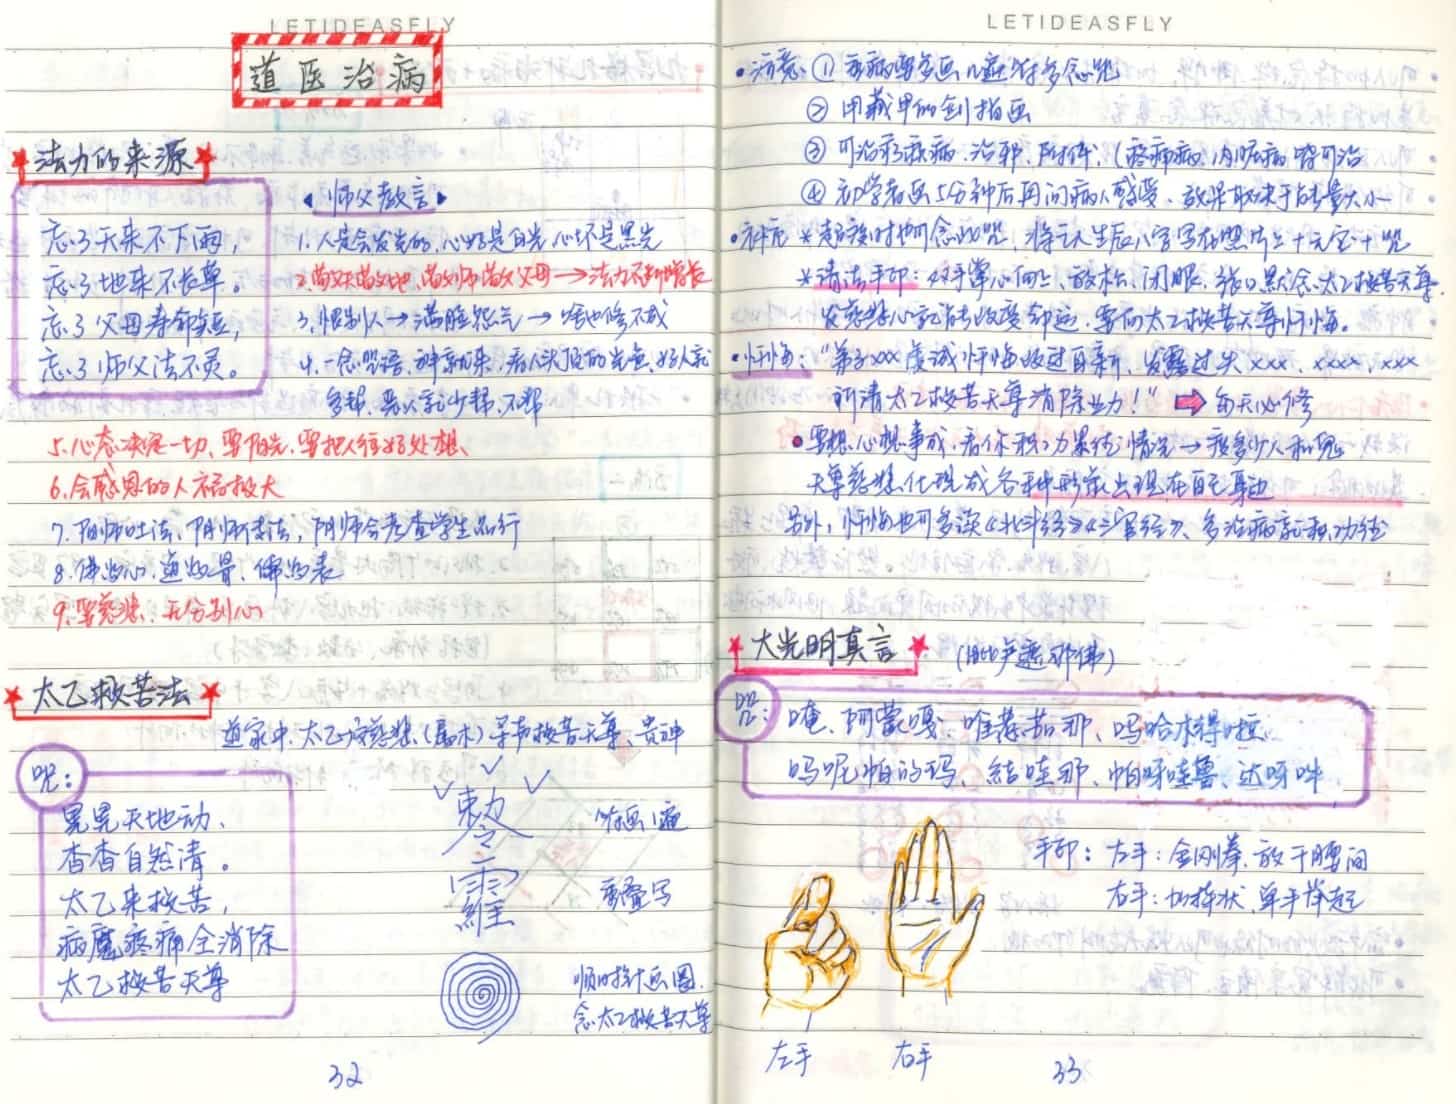 LETIDEASFLY
道医治病
法力的来源
忘了天来不下雨，
忘了地来不长草。
忘了父母寿命短，
忘了师父法不灵。
师父教言
1. 人是会发光的，心好是白光，心坏是黑光
2. 敬天敬地，敬师敬父母→法力不断增长
3. 恨别人→满腔怨气→啥也修不成
4. 一念咒语、神就来，看人头顶的光色，好人就
多帮、恶人就少帮、不帮
5. 心态决定一切、要阳光、要把人往好处想、
6. 会感恩的人福报大
7. 阴师吐法、阴师表法，阴师会考查学生品行
8. 佛为心，道为骨、儒为表
9. 要慈悲、无分别心
太乙救苦法
道家中，太乙方慈悲（属木）寻声救苦天尊、贵神
咒：
晃晃天地动、
杳杳自然清。
太乙来救苦，
病魔疼痛全消除
太乙救苦天尊
敕令
符画1遍
重叠写
顺时针画圈，
念太乙救苦天尊
32
LETIDEASFLY
注意：① 重病要多画几遍符多念咒
② 用藏甲的剑指画
③ 可治邪病、治邪、附体（疼痛病、内脏病皆可治
④ 初学者画5分钟后再问病人感受、效果取决于能量大小
补充 * 超度时也可念此咒，
* 请法手印：双手掌心向上、放松、闭眼、张口默念太乙救苦天尊
发慈悲心就能改变命运、要向太乙救苦天尊忏悔。
忏悔：“弟子xxx虔诚忏悔改过自新、发露过失xxx、xxxx、xxx
祈请太乙救苦天尊消除业力！” → 每天必修
要想心想事成，看你积功累德情况→救多少人和鬼
天尊慈悲、化现成各种形象出现在自己身边
另外，忏悔也可多读《北斗经》《三官经》、多治病就积功德
大光明真言
（毗卢遮那佛）
咒：
唵、阿蒙嘎、唯落茄那、吗哈木得啦、
吗呢帕的玛、结哇那、帕呀哇鲁、达呀吽
手印：左手：金刚拳、放于腰间
右手：如掌状、单手捧起
左手
右手
33